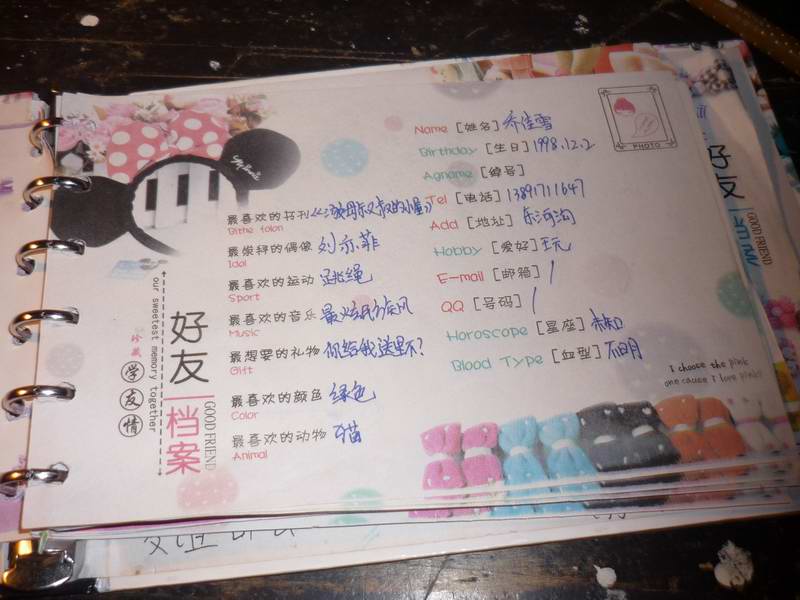 Name [姓名] 乔佳雪
Birthday [生日] 1998.12.2
Agname [绰号]
Tel [电话] 13891711647
Add [地址] 东河沟
Hobby [爱好] 玩
E-mail [邮箱] /
QQ [号码] /
Horoscope [星座] 未知
Blood Type [血型] 不明
PHOTO
最喜欢的书刊
最崇拜的偶像 刘亦菲
Idol
最喜欢的运动 跳绳
Sport
最喜欢的音乐 最炫民族风
Music
最想要的礼物 你给我送里不?
Gift
最喜欢的颜色 绿色
Color
最喜欢的动物 猫
Animal
好友
档案
GOOD FRIEND
珍藏
学友情
our sweetest memory together
I choose the pink
one cause I love pink!!
好友
GOOD FRIEND